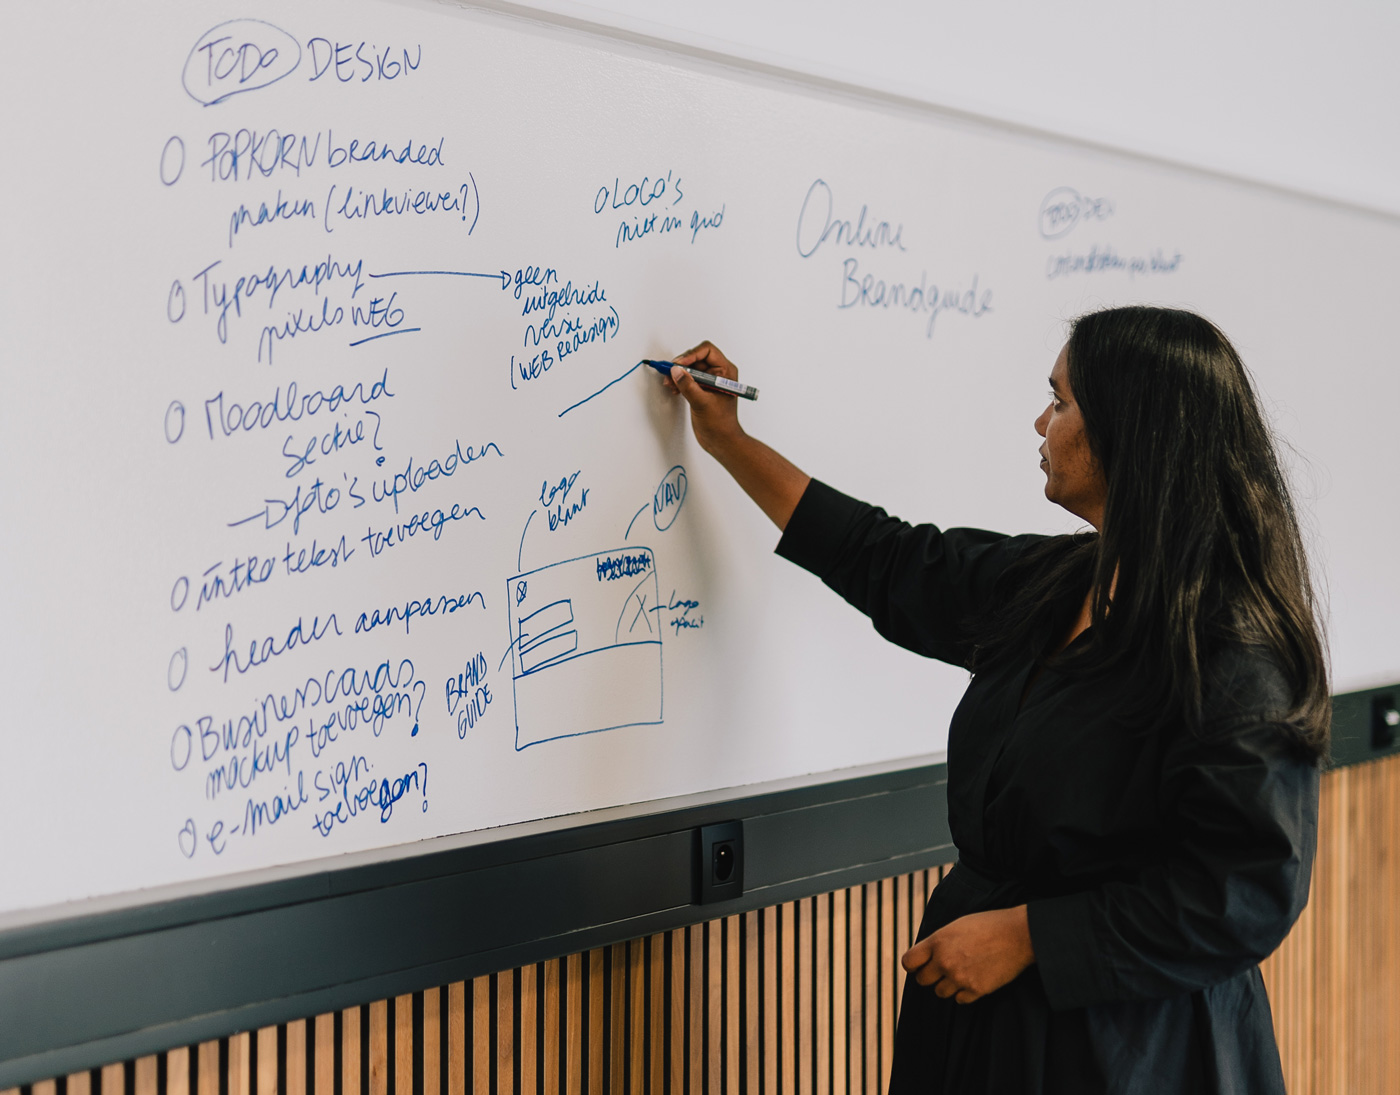 TODO DESIGN
O POPKORN branded
maken (linkviewer?)
O Typography
pixels WEG
geen
uitgebreide
versie
(WEB Redesign)
O Moodboard
Sectie?
foto's uploaden
O intro tekst toevoegen
O header aanpassen
O Businesscards
mockup toevoegen?
O e-mail sign.
toevoegen?
O LOGO's
niet in grid
logo
klant
NAV
Logo
BRAND
GUIDE
Online
Brandguide
TODO DEV